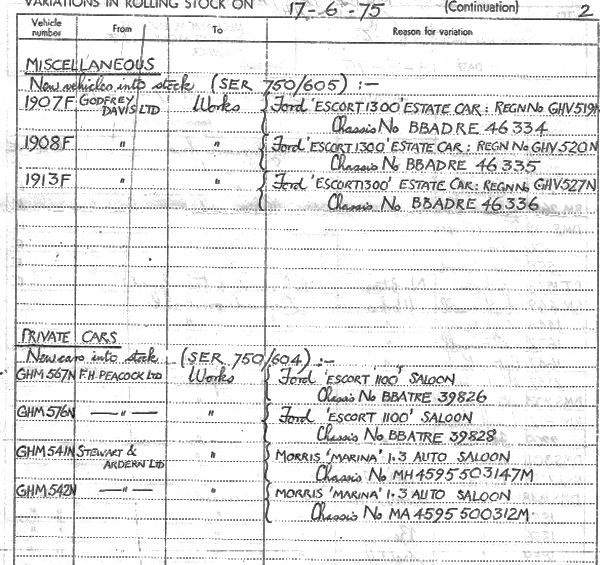 VARIATIONS IN ROLLING STOCK ON 17-6-75 (Continuation) 2
Vehicle number From To Reason for variation
MISCELLANEOUS
New vehicles into stock (SER 750/605) :-
1907F GODFREY DAVIS LTD Works Ford 'ESCORT 1300' ESTATE CAR: REGN No GHV519N
Chassis No BBADRE 46334
1908F " " Ford 'ESCORT 1300' ESTATE CAR: REGN No GHV520N
Chassis No BBADRE 46335
1913F " " Ford 'ESCORT 1300' ESTATE CAR: REGN No GHV527N
Chassis No BBADRE 46336
PRIVATE CARS
New cars into stock (SER 750/604) :-
GHM567N F.H. PEACOCK LTD Works Ford 'ESCORT 1100' SALOON
Chassis No BBATRE 39826
GHM576N —"— " Ford 'ESCORT 1100' SALOON
Chassis No BBATRE 39828
GHM541N STEWART & ARDERN LTD " MORRIS 'MARINA' 1.3 AUTO SALOON
Chassis No MH4595 503147M
GHM542N —"— " MORRIS 'MARINA' 1.3 AUTO SALOON
Chassis No MA4595 500312M